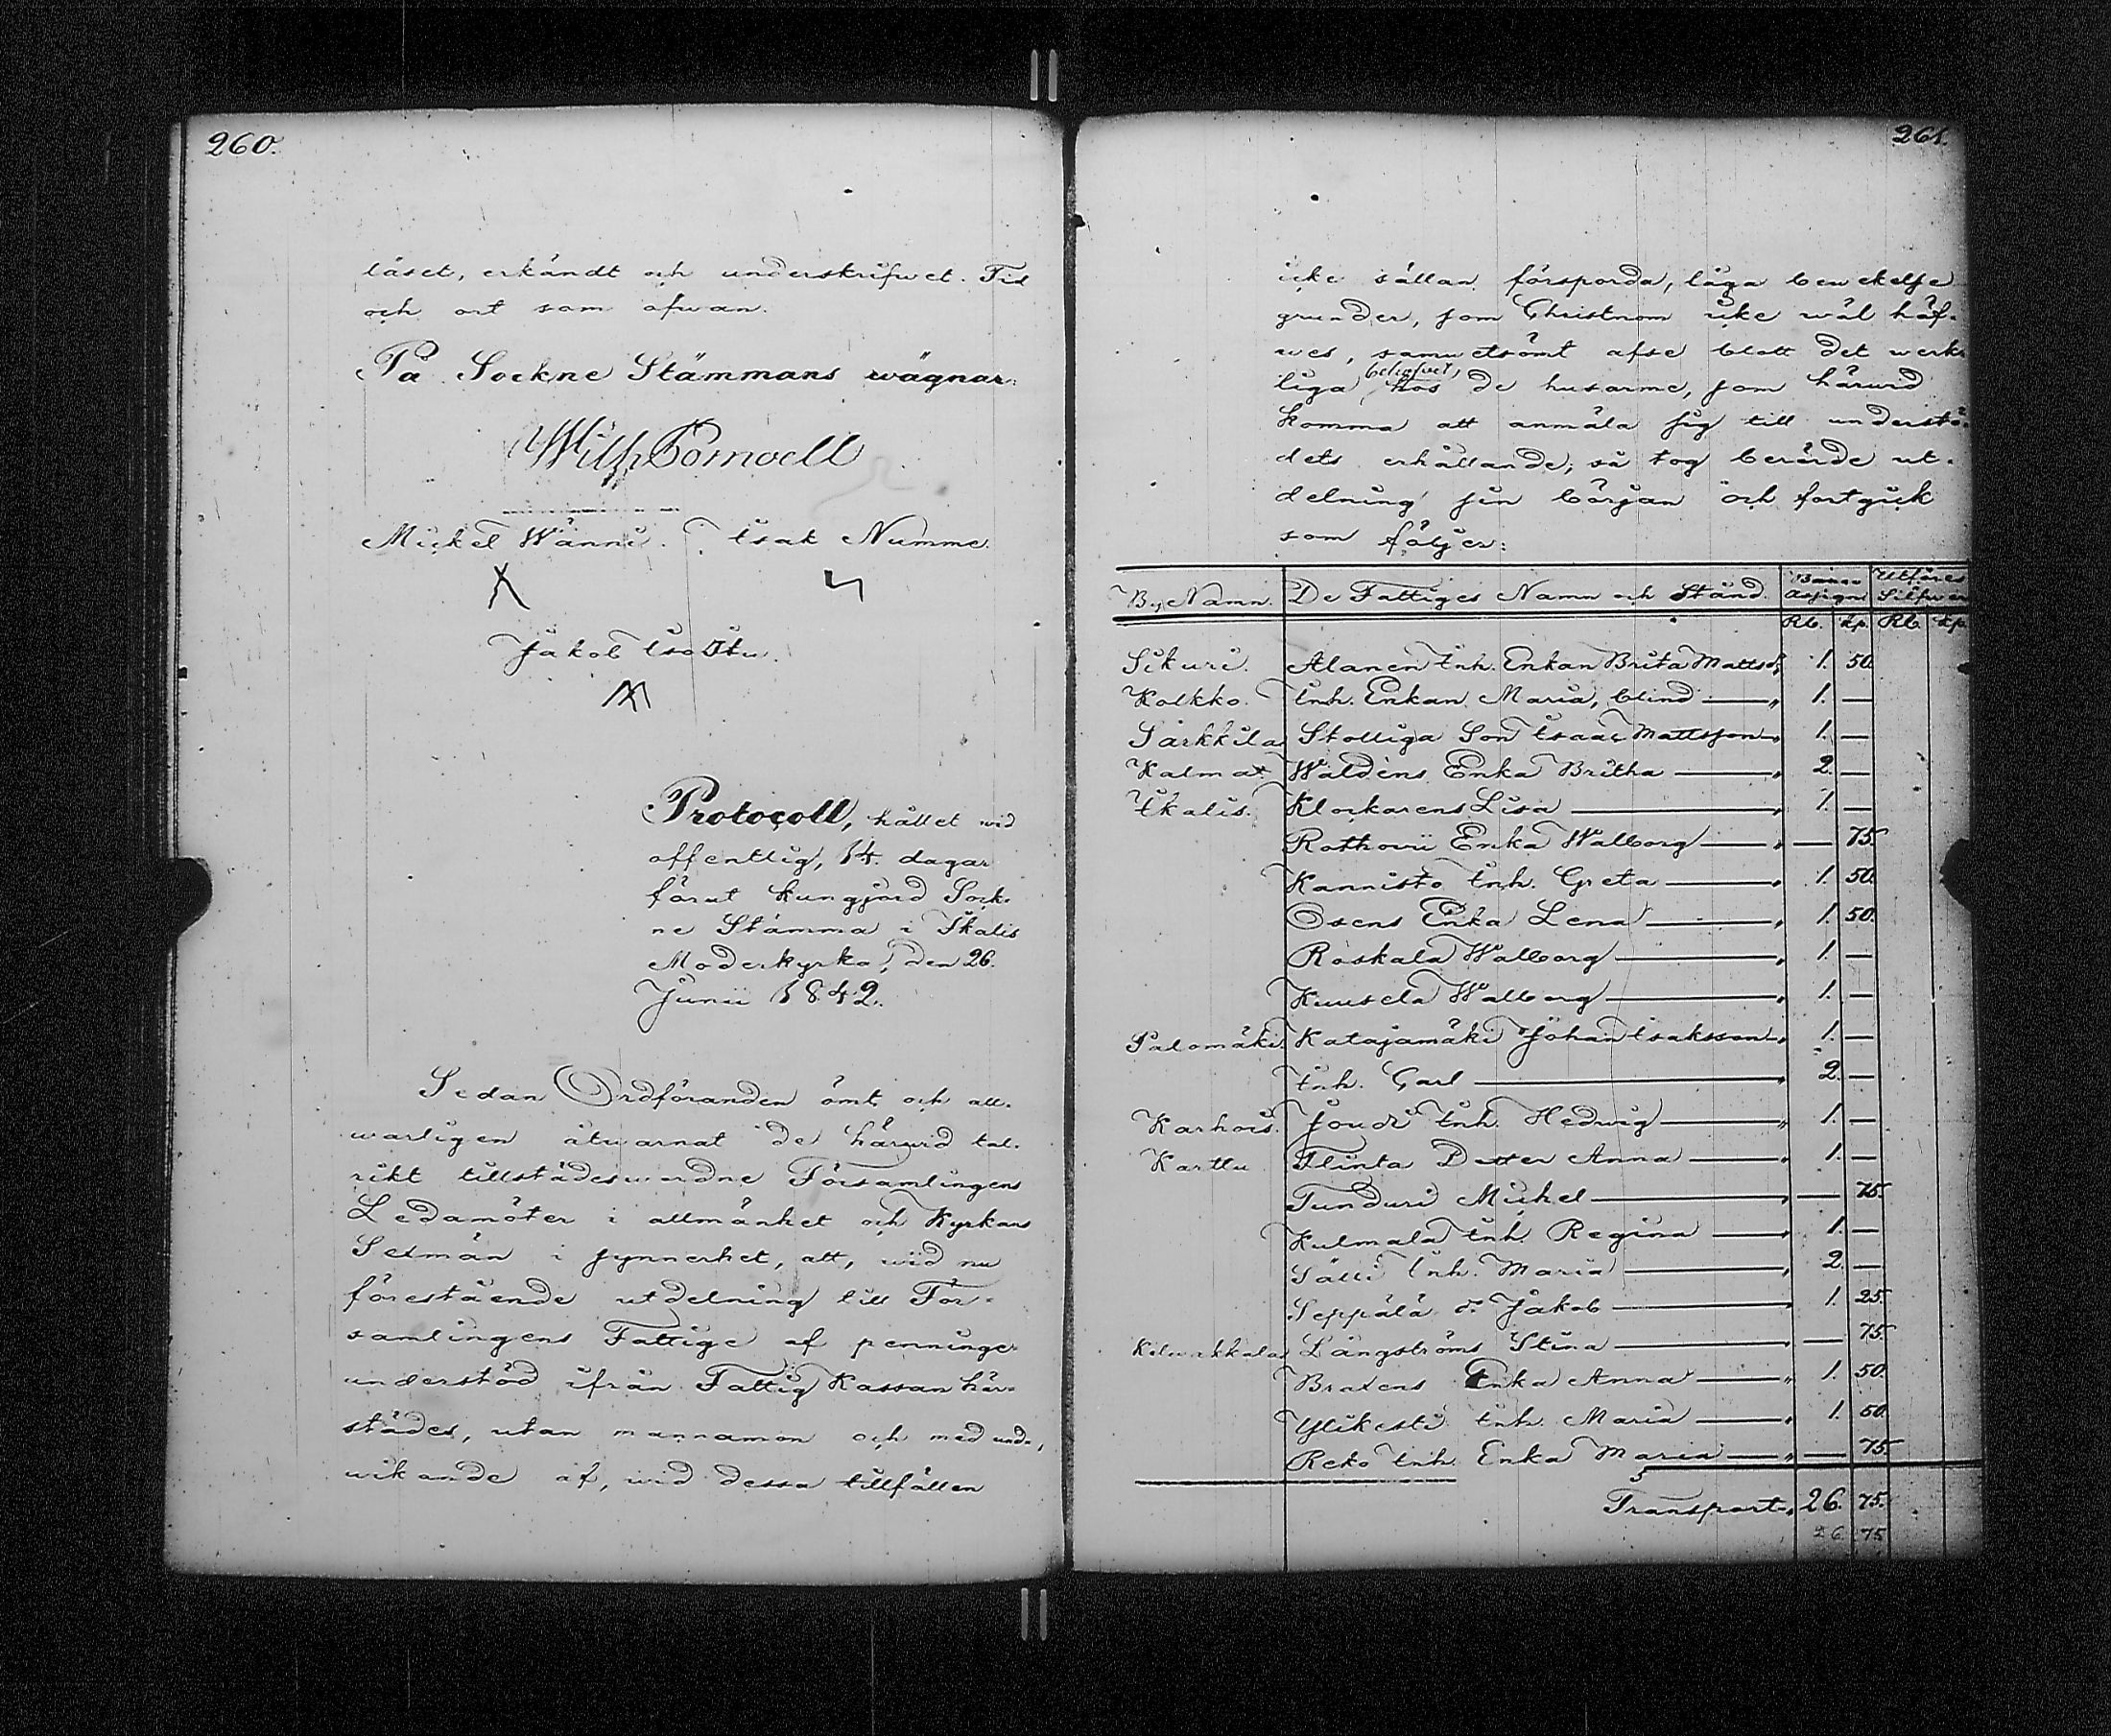 260.
läset, erkändt och underskrifwet. Tid
och ort som ofwan.
På Sockne Stämmans wägnar:
Wilh Pomoell
Mickel Wänni. Isak Numme.
Jakob Iso Itu.
Protocoll, hållet wid
offentlig, 14 dagar
förut kungjord Sock-
ne Stämma i Ikalis
Moderkyrka, den 26.
Junii 1842.
Sedan Ordföranden ömt och all-
warligen åtwarnat de härwid tal-
rikt tillstädeswardne Församlingens
Ledamöter i allmänhet och Kyrkans
Sexmän i synnerhet, att, wid nu
förestående utdelning till För-
samlingens Fattige af penninge-
understöd ifrån Fattig Kassan här-
städes, utan mannamon och med und-
wikande af, wid dessa tillfällen
261.
icke sällan försporda, låga bewekelse
grunder, som Christnom icke wäl höf-
wes, samwetsömt afse blott det werk-
liga behofwet, hos de husarme, som härwid
komma att anmäla sig till understö-
dets erhållande; så tog berörde ut-
delning sin början och fortgick
som följer:
By Namn. De Fattiges Namn och Stånd. Banco Assign. Utföres Silfwer
Rb. kp. Rb. kp.
Sikuri. Alanen Inh. Enkan Brita Mattsd. 1. 50.
Kolkko. Inh. Enkan Maria, blind 1. —
Särkkilä Stolliga Son Isaac Mattsson 1. —
Kalmat Waldéns Enka Britha 2. —
Ikalis. Klockarens Lisa 1. —
Rothovii Enka Walborg — 75.
Kannisto Inh. Greta 1. 50.
Osens Enka Lena 1. 50.
Roskala Walborg 1. —
Kuusela Walborg 1. —
Palomäki. Katajamäki Johan Isaksson 1. —
Inh. Carl 2. —
Karhois. Joudi Inh. Hedwig 1. —
Karttu Flinta Dotter Anna 1. —
Tunduri Mickel — 75.
Kulmala Inh. Regina 1. —
Sälli Inh. Maria 2. —
Seppälä d:o Jakob 1. 25.
Kilwakkala Långströms Stina — 75.
Braxens Enka Anna 1. 50.
Ylikesti Inh. Maria 1. 50.
Reko Inh. Enka Maria — 75.
Transport 26. 75.
26 75